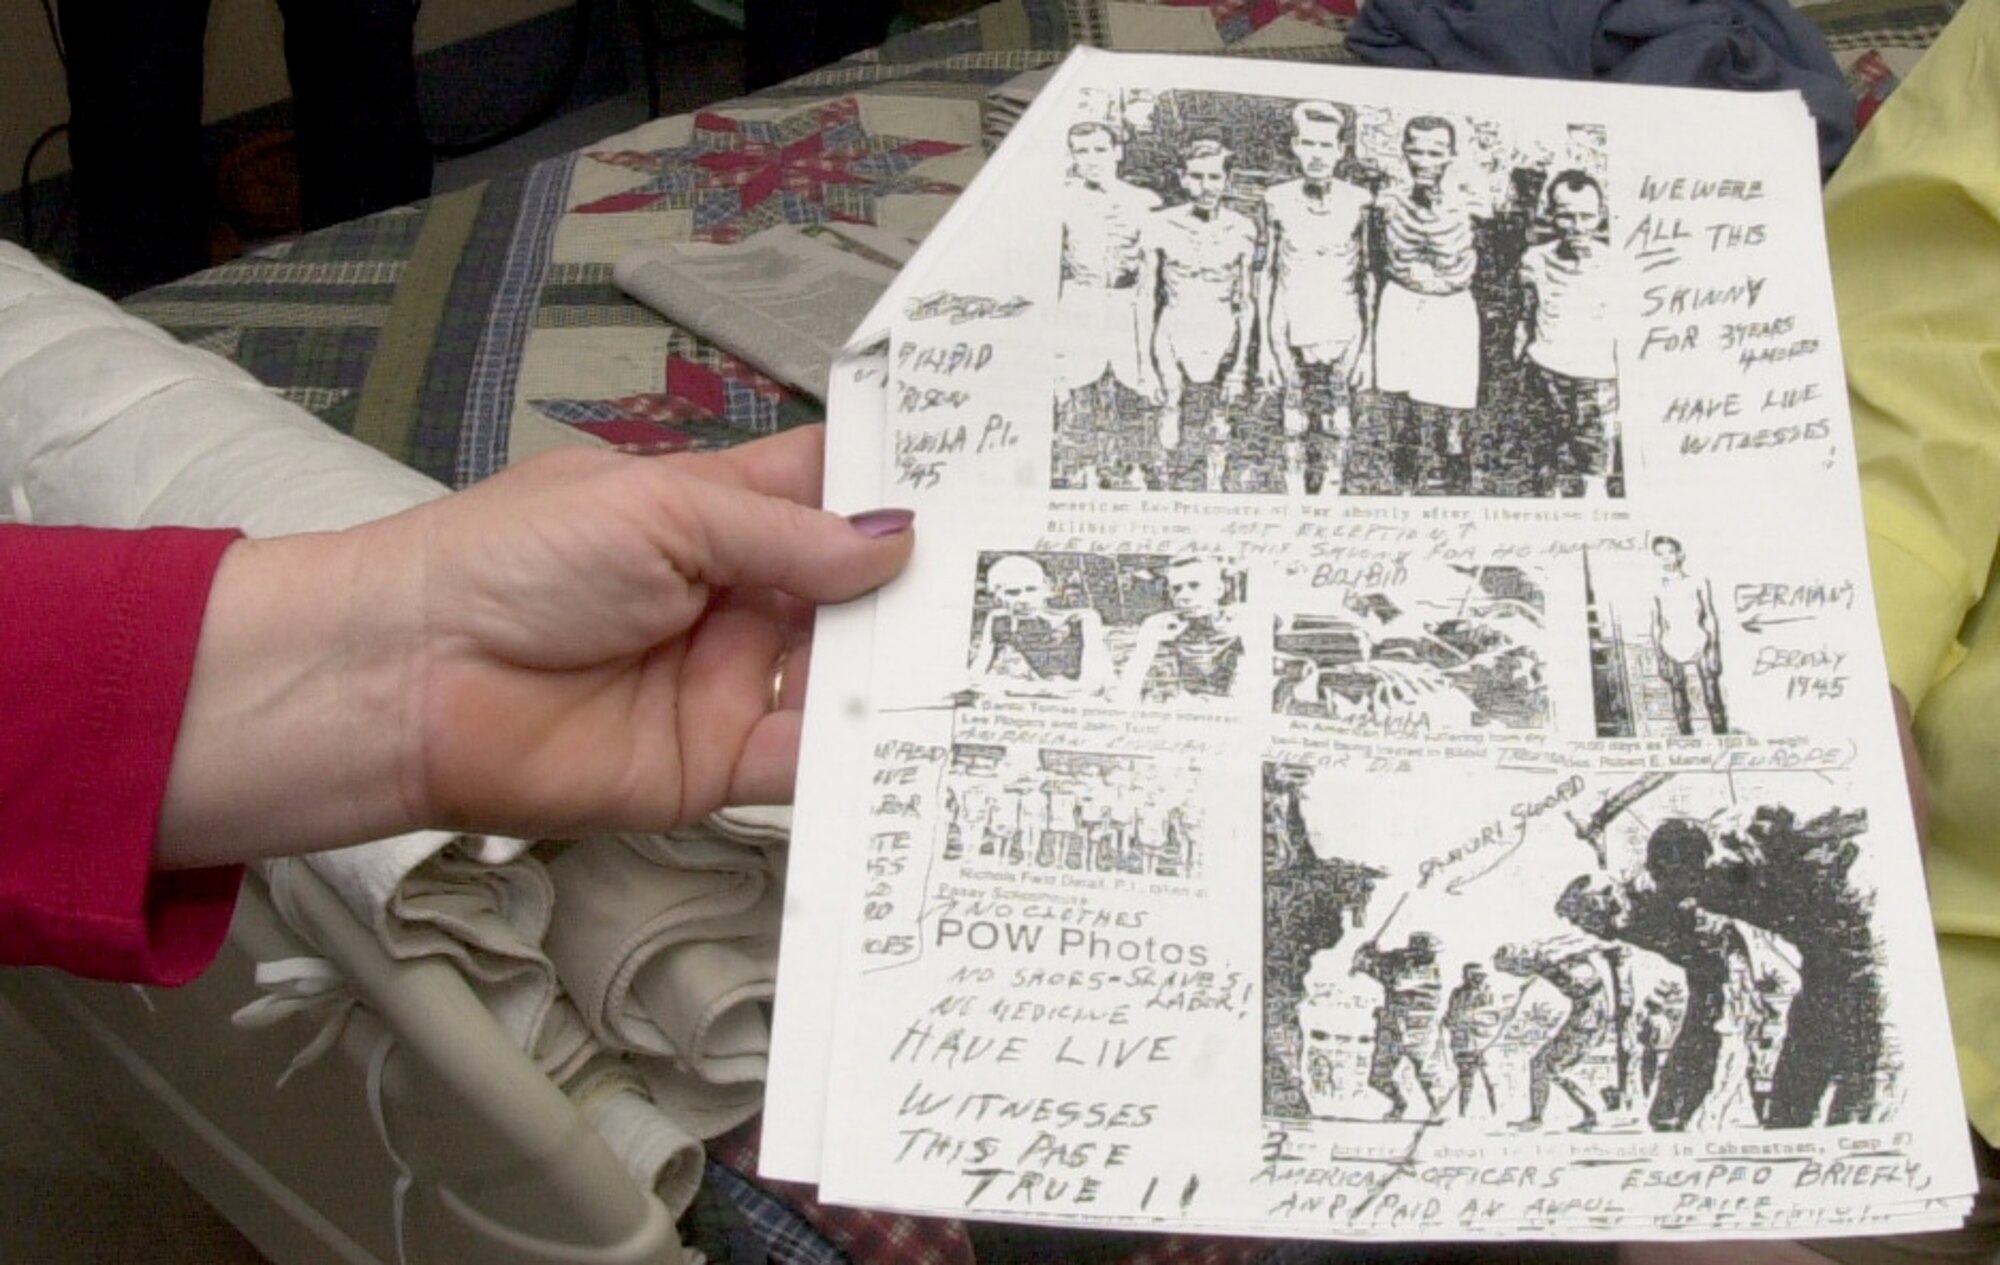 WE WERE
ALL THIS
SKINNY
FOR 3 YEARS
4 MONTHS
HAVE LIVE
WITNESSES
!
BILIBID
PRISON
MANILA P.I.
'45
American Ex-Prisoners of War shortly after liberation from
Bilibid Prison. NOT EXCEPTION ↑
WE WERE ALL THIS SKINNY FOR 40 MONTHS!
BILIBID
GERMANY
GERMANY
1945
Santo Tomas prison camp
Lee Rogers and John Todd
AMERICAN CIVILIANS
MANILA
An American suffering from dry
beri-beri being treated in Bilibid
LATER DIED
Robert E.
(EUROPE)
Nichols Field Detail, P.I., taken at
Pasay Schoolhouse
NO CLOTHES
POW Photos
NO SHOES-SLAVES
LABOR!
NO MEDICINE
HAVE LIVE
WITNESSES
THIS PAGE
TRUE !!
SAMURI SWORD
3
about to be beheaded in Cabanatuan, Camp #1
AMERICAN OFFICERS ESCAPED BRIEFLY,
AND PAID AN AWFUL PRICE